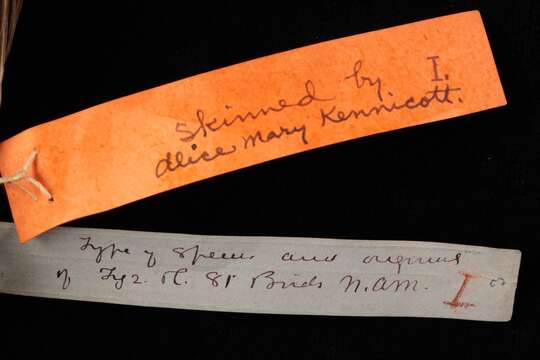 Skinned by I.
Alice Mary Kennicott.
Type of species and original
of Fig 2. Pl. 81 Birds N. AM. I